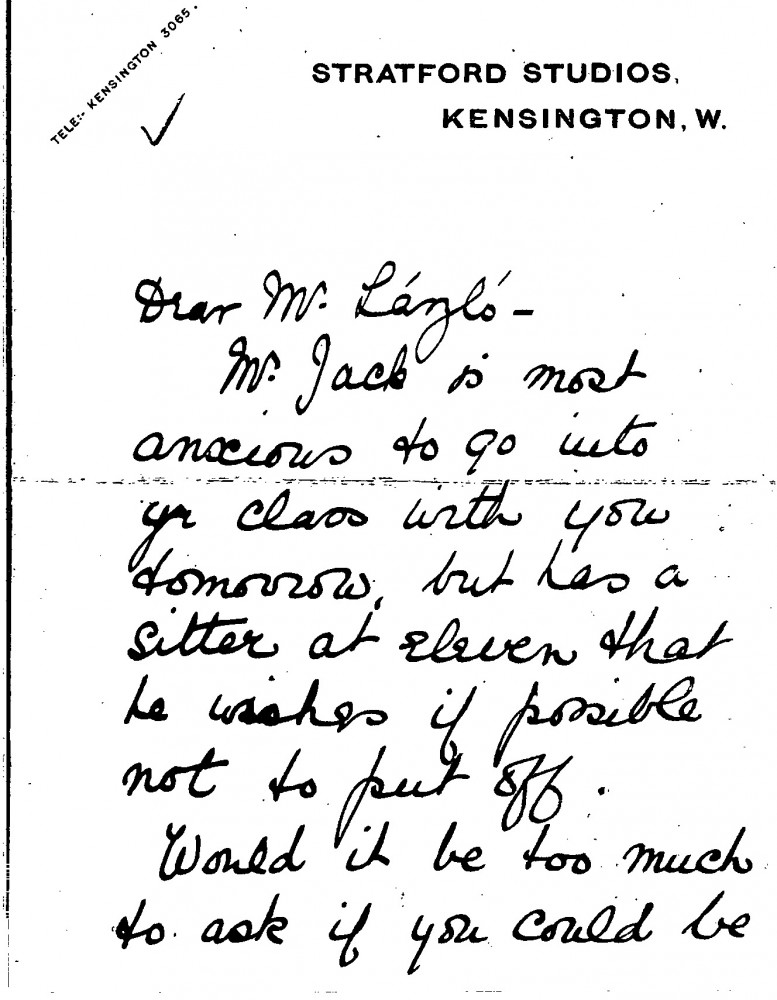 TELE:- KENSINGTON 3065.
STRATFORD STUDIOS,
KENSINGTON, W.
Dear Mr. László –
Mr. Jack is most
anxious to go into
yr class with you
tomorrow, but has a
sitter at eleven that
he wishes if possible
not to put off.
Would it be too much
to ask if you could be